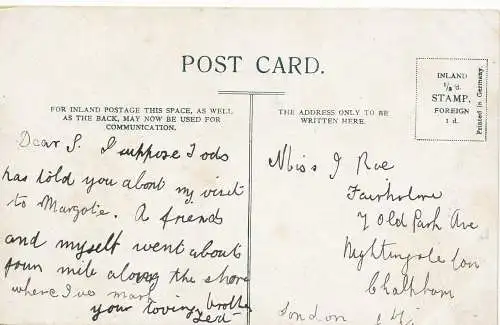 POST CARD.
FOR INLAND POSTAGE THIS SPACE, AS WELL
AS THE BACK, MAY NOW BE USED FOR
COMMUNICATION.
THE ADDRESS ONLY TO BE
WRITTEN HERE.
INLAND
½d.
STAMP.
FOREIGN
1 d.
Printed in Germany.
Dear S. I suppose Tods
has told you about my visit
to Margate. A friend
and myself went about
four mile along the shore
where I've mark
your loving brother
Ted
Miss J Roe
Fairholme
7 Old Park Ave
Nightingale Lan
Clapham
London